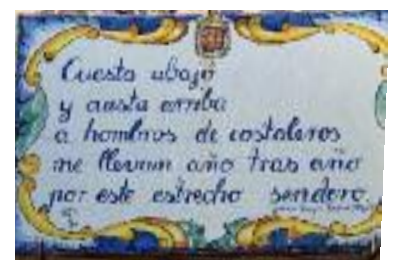 Cuesta abajo
y cuesta arriba
a hombros de costaleros
me llevan año tras año
por este estrecho sendero.